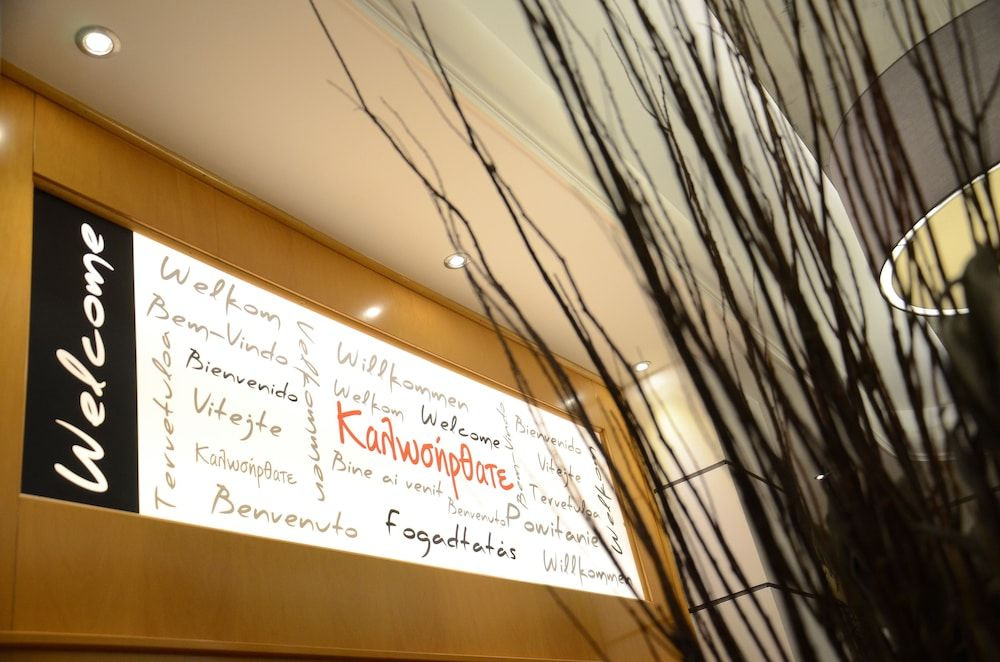 Welcome
Welkom
Bem-Vindo
Bienvenido
Vitejte
Καλωσήρθατε
Benvenuto
Tervetuloa
Velkommen
Willkommen
Welkom
Welcome
Καλωσήρθατε
Bine ai venit
Benvenuto
Fogadtatás
Powitanie
Willkommen
Bienvenido
Vitejte
Tervetuloa
Welkom